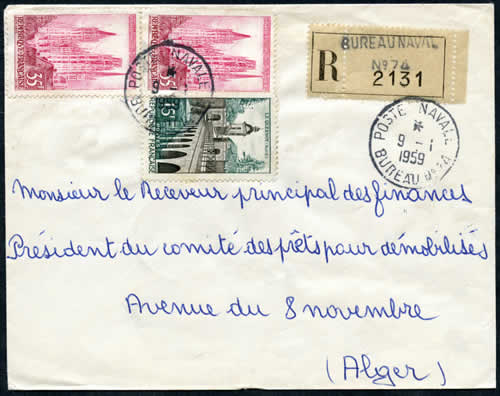 35F
REPUBLIQUE FRANÇAISE
35F
POSTE NAVALE
BUREAU
15F
LE QUESNOY
BUREAU NAVAL
R
N° 74
2131
POSTE NAVALE
9 - 1
1959
BUREAU N° 74
Monsieur le Receveur principal des finances
Président du comité des prêts pour démobilisés
Avenue du 8 novembre
(Alger)